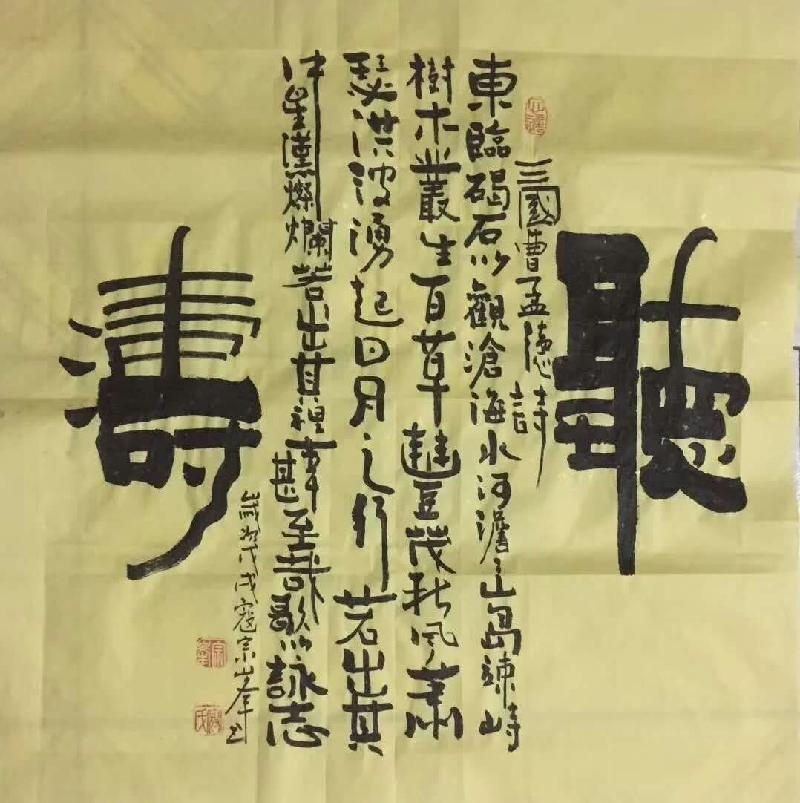 聽
三國曹孟德詩
東臨碣石以觀滄海水河澹〻山島竦峙
樹木叢生百草豐茂秋風蕭
瑟洪波湧起日月之行若出其
中星漢燦爛若出其裡幸甚至哉歌以詠志
濤
歲次戊戌寇宗峯書